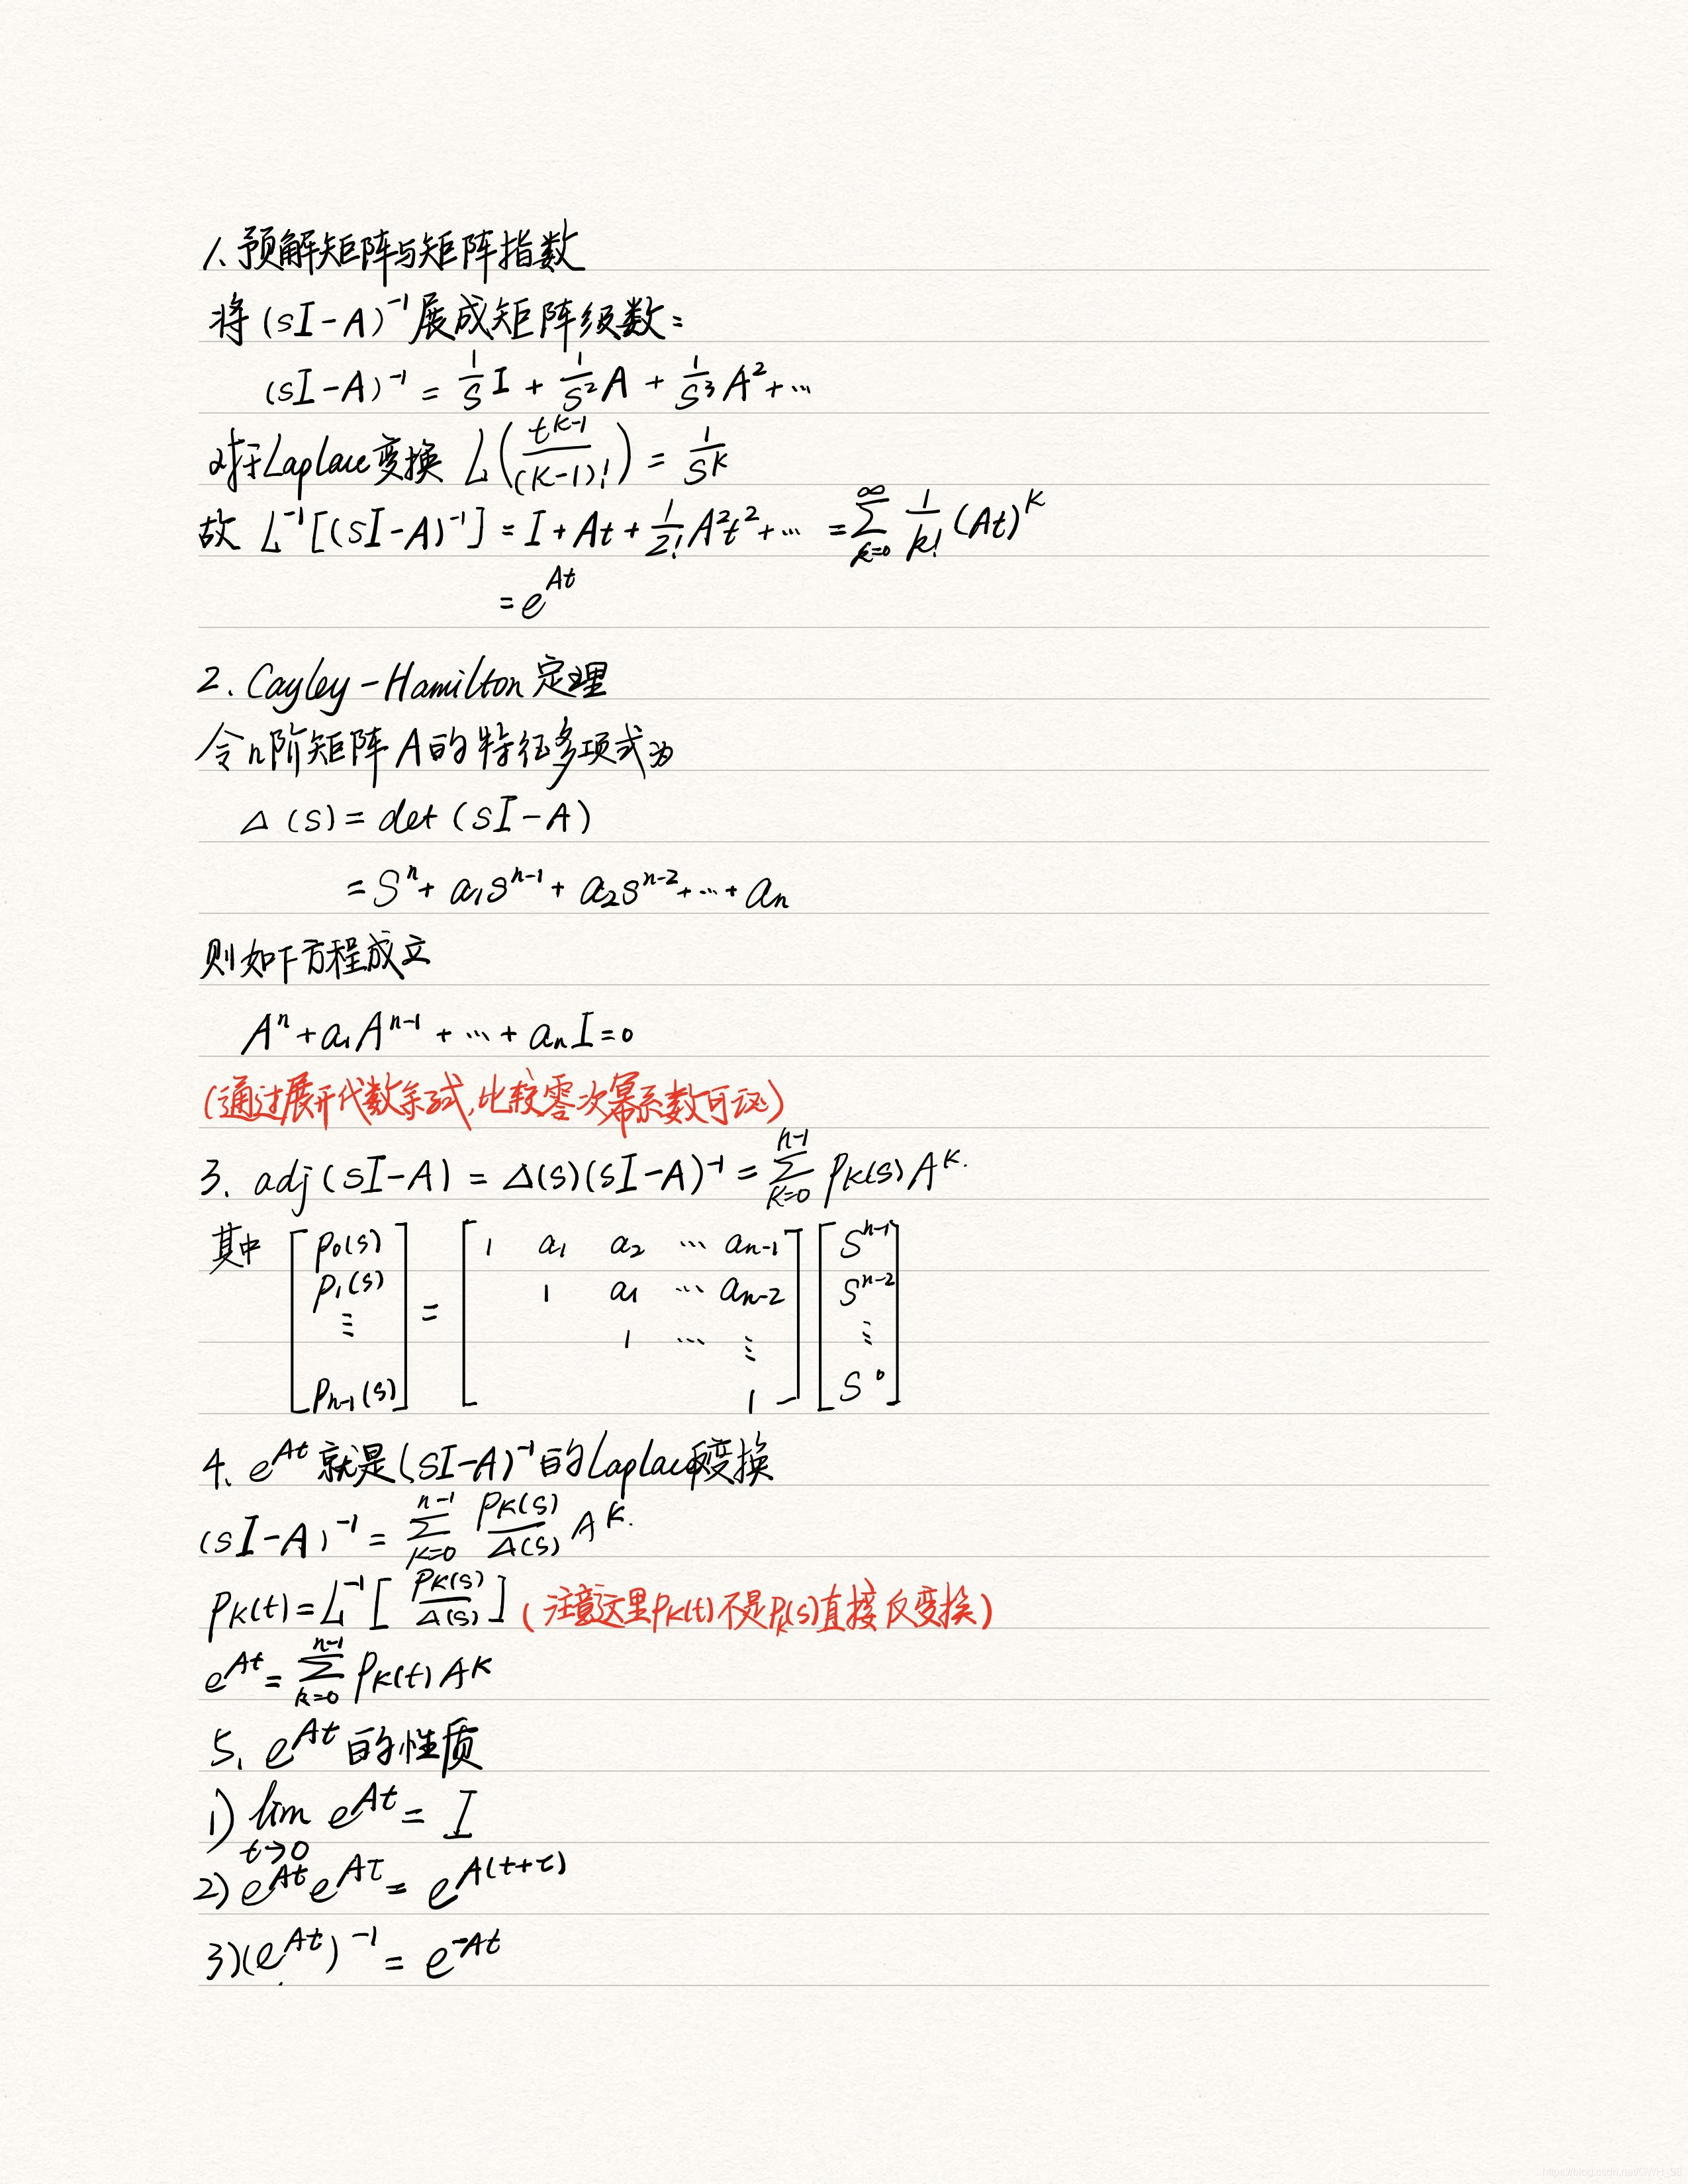 1. 预解矩阵与矩阵指数
将 (sI-A)⁻¹ 展成矩阵级数：
(sI-A)⁻¹ = 1/s I + 1/s² A + 1/s³ A² + ⋯
对于Laplace变换 L(t^(k-1)/(k-1)!) = 1/s^k
故 L⁻¹[(sI-A)⁻¹] = I + At + 1/2! A²t² + ⋯ = ∑_{k=0}^{∞} 1/k! (At)^k
= e^(At)
2. Cayley-Hamilton 定理
令n阶矩阵A的特征多项式为
Δ(s) = det(sI-A)
= s^n + a₁s^(n-1) + a₂s^(n-2) + ⋯ + a_n
则如下方程成立
A^n + a₁A^(n-1) + ⋯ + a_n I = 0
(通过展开代数余子式,比较零次幂系数可证)
3. adj(sI-A) = Δ(s)(sI-A)⁻¹ = ∑_{k=0}^{n-1} p_k(s) A^k.
其中 [p₀(s) p₁(s) ⋮ p_(n-1)(s)] = [1 a₁ a₂ ⋯ a_(n-1) 1 a₁ ⋯ a_(n-2) 1 ⋯ ⋮ 1] [s^(n-1) s^(n-2) ⋮ s⁰]
4. e^(At) 就是 (sI-A)⁻¹ 的Laplace反变换
(sI-A)⁻¹ = ∑_{k=0}^{n-1} p_k(s)/Δ(s) A^k.
p_k(t) = L⁻¹[p_k(s)/Δ(s)] (注意这里p_k(t)不是p_k(s)直接反变换)
e^(At) = ∑_{k=0}^{n-1} p_k(t) A^k
5. e^(At) 的性质
1) lim_{t→0} e^(At) = I
2) e^(At) e^(Aτ) = e^(A(t+τ))
3) (e^(At))⁻¹ = e^(-At)